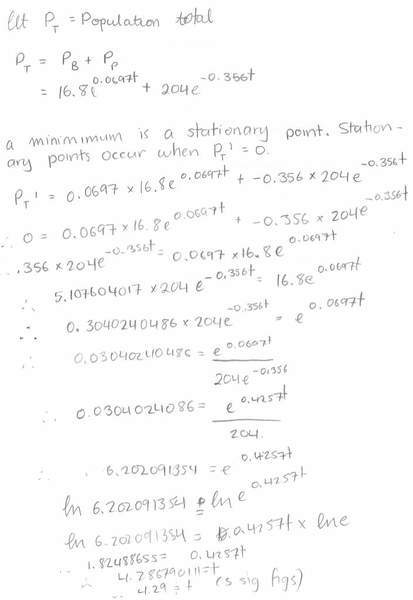 let P_T = Population total
P_T = P_B + P_P
= 16.8e^0.0697t + 204e^-0.356t
a minimimum is a stationary point. Station-
ary points occur when P_T' = 0.
P_T' = 0.0697 × 16.8e^0.0697t + -0.356 × 204e^-0.356t
∴ 0 = 0.0697 × 16.8e^0.0697t + -0.356 × 204e^-0.356t
.356 × 204e^-0.356t = 0.0697 × 16.8e^0.0697t
∴ 5.107604017 × 204e^-0.356t = 16.8e^0.0697t
∴ 0.3040240486 × 204e^-0.356t = e^0.0697t
∴ 0.03040240486 = e^0.0697t / 204e^-0.356
∴ 0.0304024086 = e^0.4257t / 204.
∴ 6.202091354 = e^0.4257t
ln 6.202091354 = ln e^0.4257t
ln 6.202091354 = 0.4257t × ln e
∴ 1.82488655 = 0.4257t
∴ 4.286790111 = t
∴ 4.29 = t (3 sig figs)